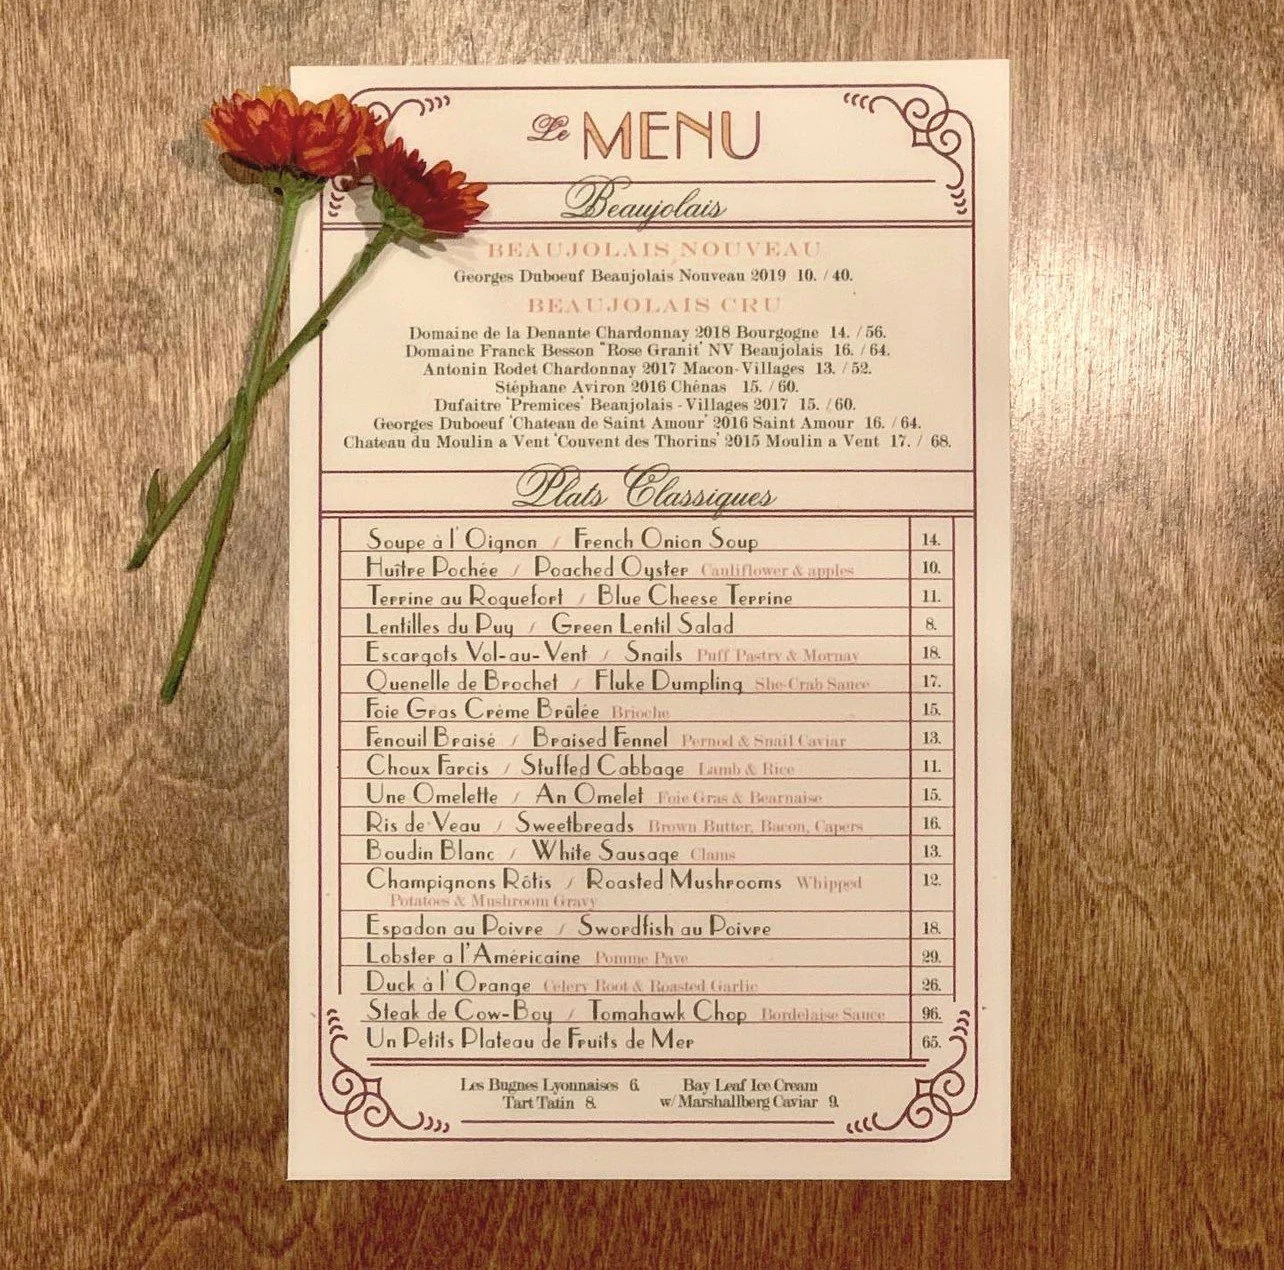 Le MENU
Beaujolais
BEAUJOLAIS NOUVEAU
Georges Duboeuf Beaujolais Nouveau 2019 10. / 40.
BEAUJOLAIS CRU
Domaine de la Denante Chardonnay 2018 Bourgogne 14. / 56.
Domaine Franck Besson "Rose Granit' NV Beaujolais 16. / 64.
Antonin Rodet Chardonnay 2017 Macon-Villages 13. / 52.
Stéphane Aviron 2016 Chénas 15. / 60.
Dufaitre 'Premices' Beaujolais - Villages 2017 15. / 60.
Georges Duboeuf 'Chateau de Saint Amour' 2016 Saint Amour 16. / 64.
Chateau du Moulin a Vent 'Couvent des Thorins' 2015 Moulin a Vent 17. / 68.
Plats Classiques
Soupe à l'Oignon / French Onion Soup 14.
Huître Pochée / Poached Oyster Cauliflower & apples 10.
Terrine au Roquefort / Blue Cheese Terrine 11.
Lentilles du Puy / Green Lentil Salad 8.
Escargots Vol-au-Vent / Snails Puff Pastry & Mornay 18.
Quenelle de Brochet / Fluke Dumpling She-Crab Sauce 17.
Foie Gras Crème Brûlée Brioche 15.
Fenouil Braisé / Braised Fennel Pernod & Snail Caviar 13.
Choux Farcis / Stuffed Cabbage Lamb & Rice 11.
Une Omelette / An Omelet Foie Gras & Bearnaise 15.
Ris de Veau / Sweetbreads Brown Butter, Bacon, Capers 16.
Boudin Blanc / White Sausage Clams 13.
Champignons Rôtis / Roasted Mushrooms Whipped 12.
Potatoes & Mushroom Gravy
Espadon au Poivre / Swordfish au Poivre 18.
Lobster a l'Américaine Pomme Pave 29.
Duck à l'Orange Celery Root & Roasted Garlic 26.
Steak de Cow-Boy / Tomahawk Chop Bordelaise Sauce 96.
Un Petits Plateau de Fruits de Mer 65.
Les Bugnes Lyonnaises 6. Bay Leaf Ice Cream
Tart Tatin 8. w/ Marshallberg Caviar 9.